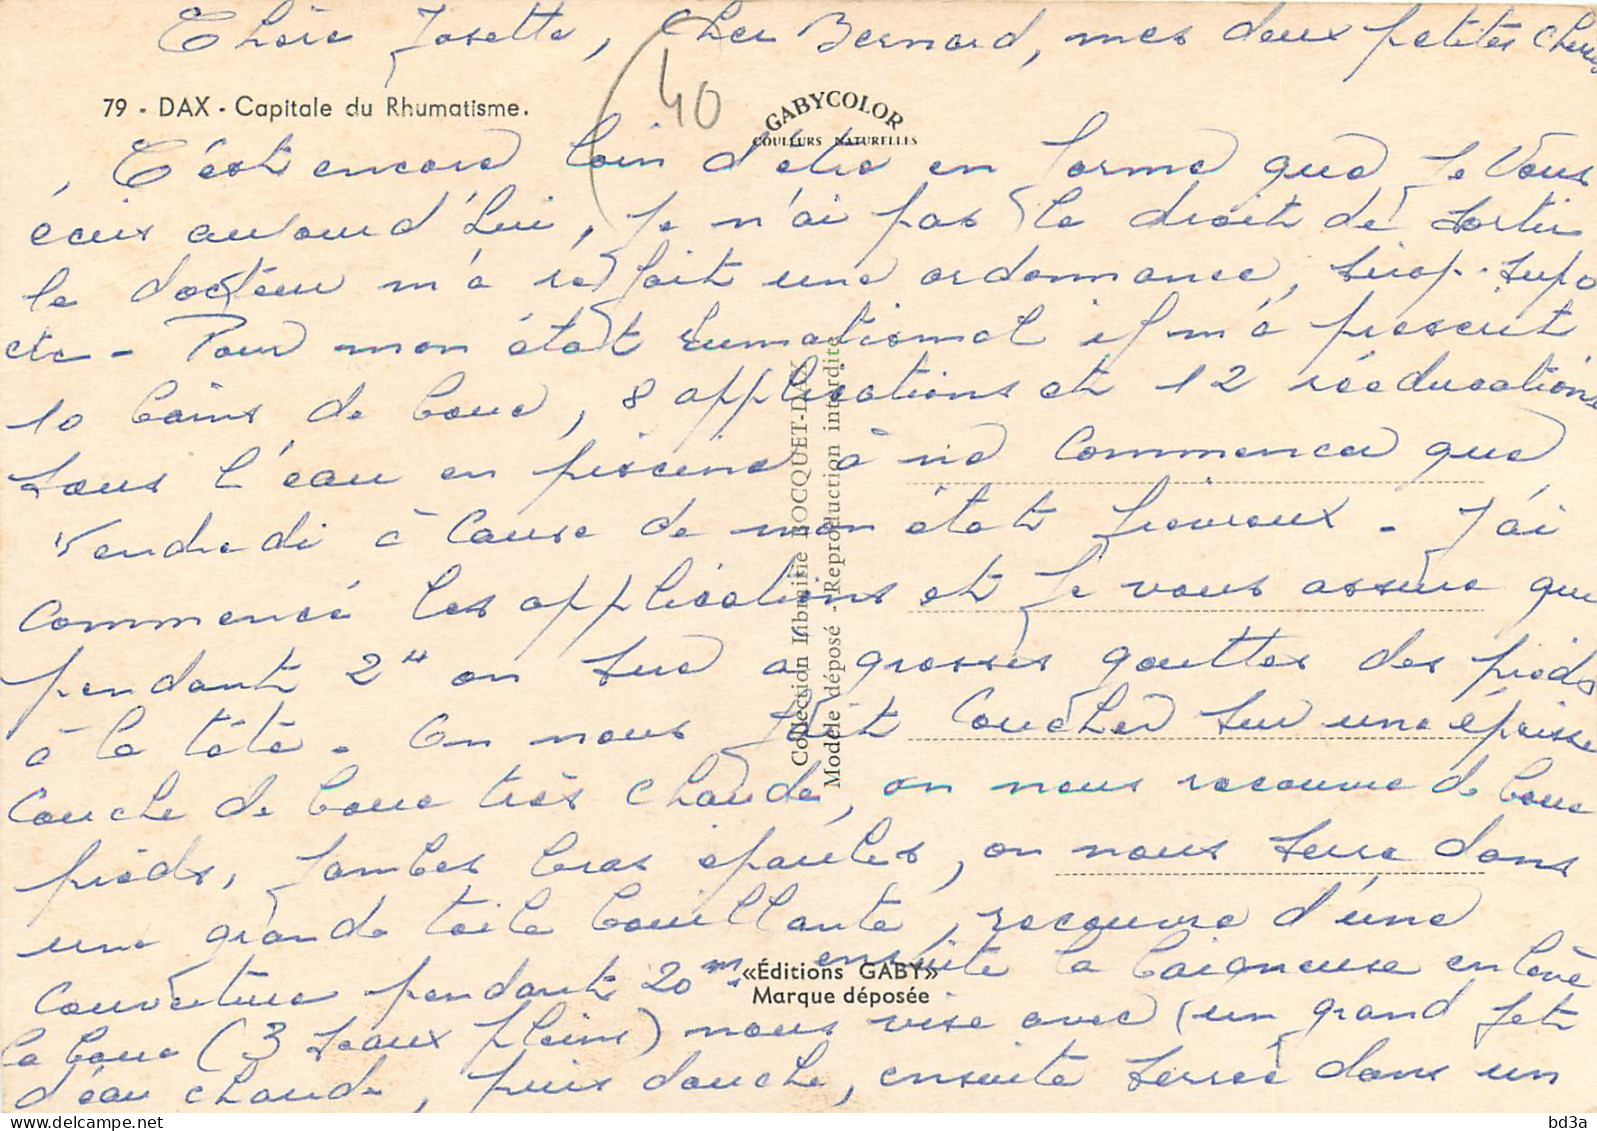 Chère Josette, Cher Bernard, mes deux petites cheries
40
79 - DAX - Capitale du Rhumatisme.
GABYCOLOR
COULEURS NATURELLES
C'est encore loin d'etre en forme que je vous
écris aujourd'hui, je n'ai pas le droit de sortir
le docteur m'a refait une ordonnance, sirop. supo
etc - Pour mon état rumatismal il m'a prescrit
10 bains de boue, 8 applications et 12 rééducations
sous l'eau en piscine à ne commencer que
vendredi à cause de mon état fievreux - J'ai
commencé les applications et je vous assure que
pendant 2H on sue a grosses gouttes des pieds
à la tête - On nous fait coucher sur une épaisse
couche de boue très chaude, on nous recouvre de boue
pieds, jambes bras épaules, on nous serre dans
une grande toile bouillante, recouvre d'une
couverture pendant 20 m. ensuite la baigneuse enlève
la boue (3 seaux pleins) nous vise avec un grand jet
d'eau chaude, puis douche, ensuite serrée dans un
Collection Librairie BOCQUET-DAX
Modèle déposé - Reproduction interdite
«Éditions GABY»
Marque déposée
bd3a